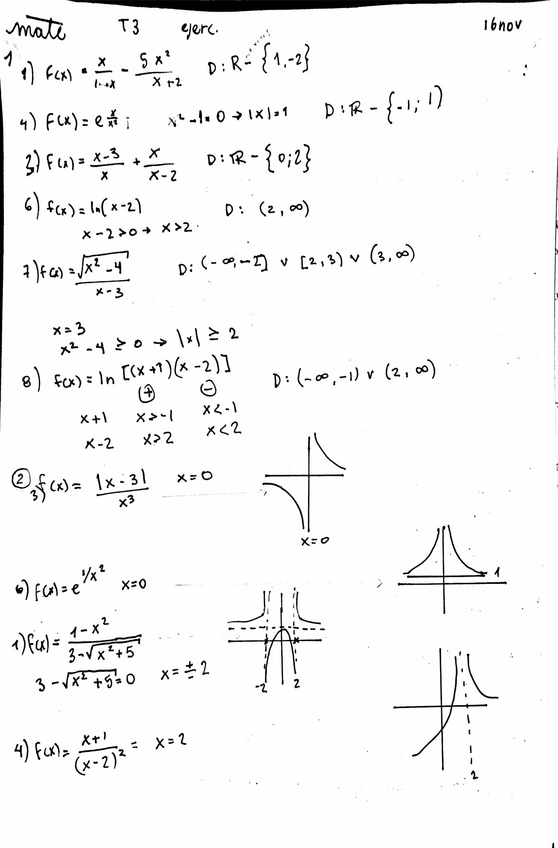 mate T3 ejerc. 16nov
1
1) f(x) = x/(1-x) - 5x²/(x+2) D: R - {1,-2}
4) f(x) = e ; x²-1=0 → |x|=1 D: R - {-1; 1)
3) f(x) = (x-3)/x + x/(x-2) D: R - {0;2}
6) f(x) = ln(x-2) D: (2, ∞)
x-2>0 → x>2.
7) f(x) = √(x²-4)/(x-3) D: (-∞,-2] v [2,3) v (3,∞)
x=3
x²-4 ≥ 0 → |x| ≥ 2
8) f(x) = ln [(x+1)(x-2)] D: (-∞,-1) v (2,∞)
⊕ ⊖
x+1 x>-1 x<-1
x-2 x>2 x<2
② 3) f(x) = |x-3|/x³ x=0
x=0
6) f(x) = e^(1/x²) x=0
1
1) f(x) = (1-x²)/(3-√(x²+5))
3-√(x²+5)=0 x=±2
-2 2
4) f(x) = (x+1)/(x-2)² = x=2
2